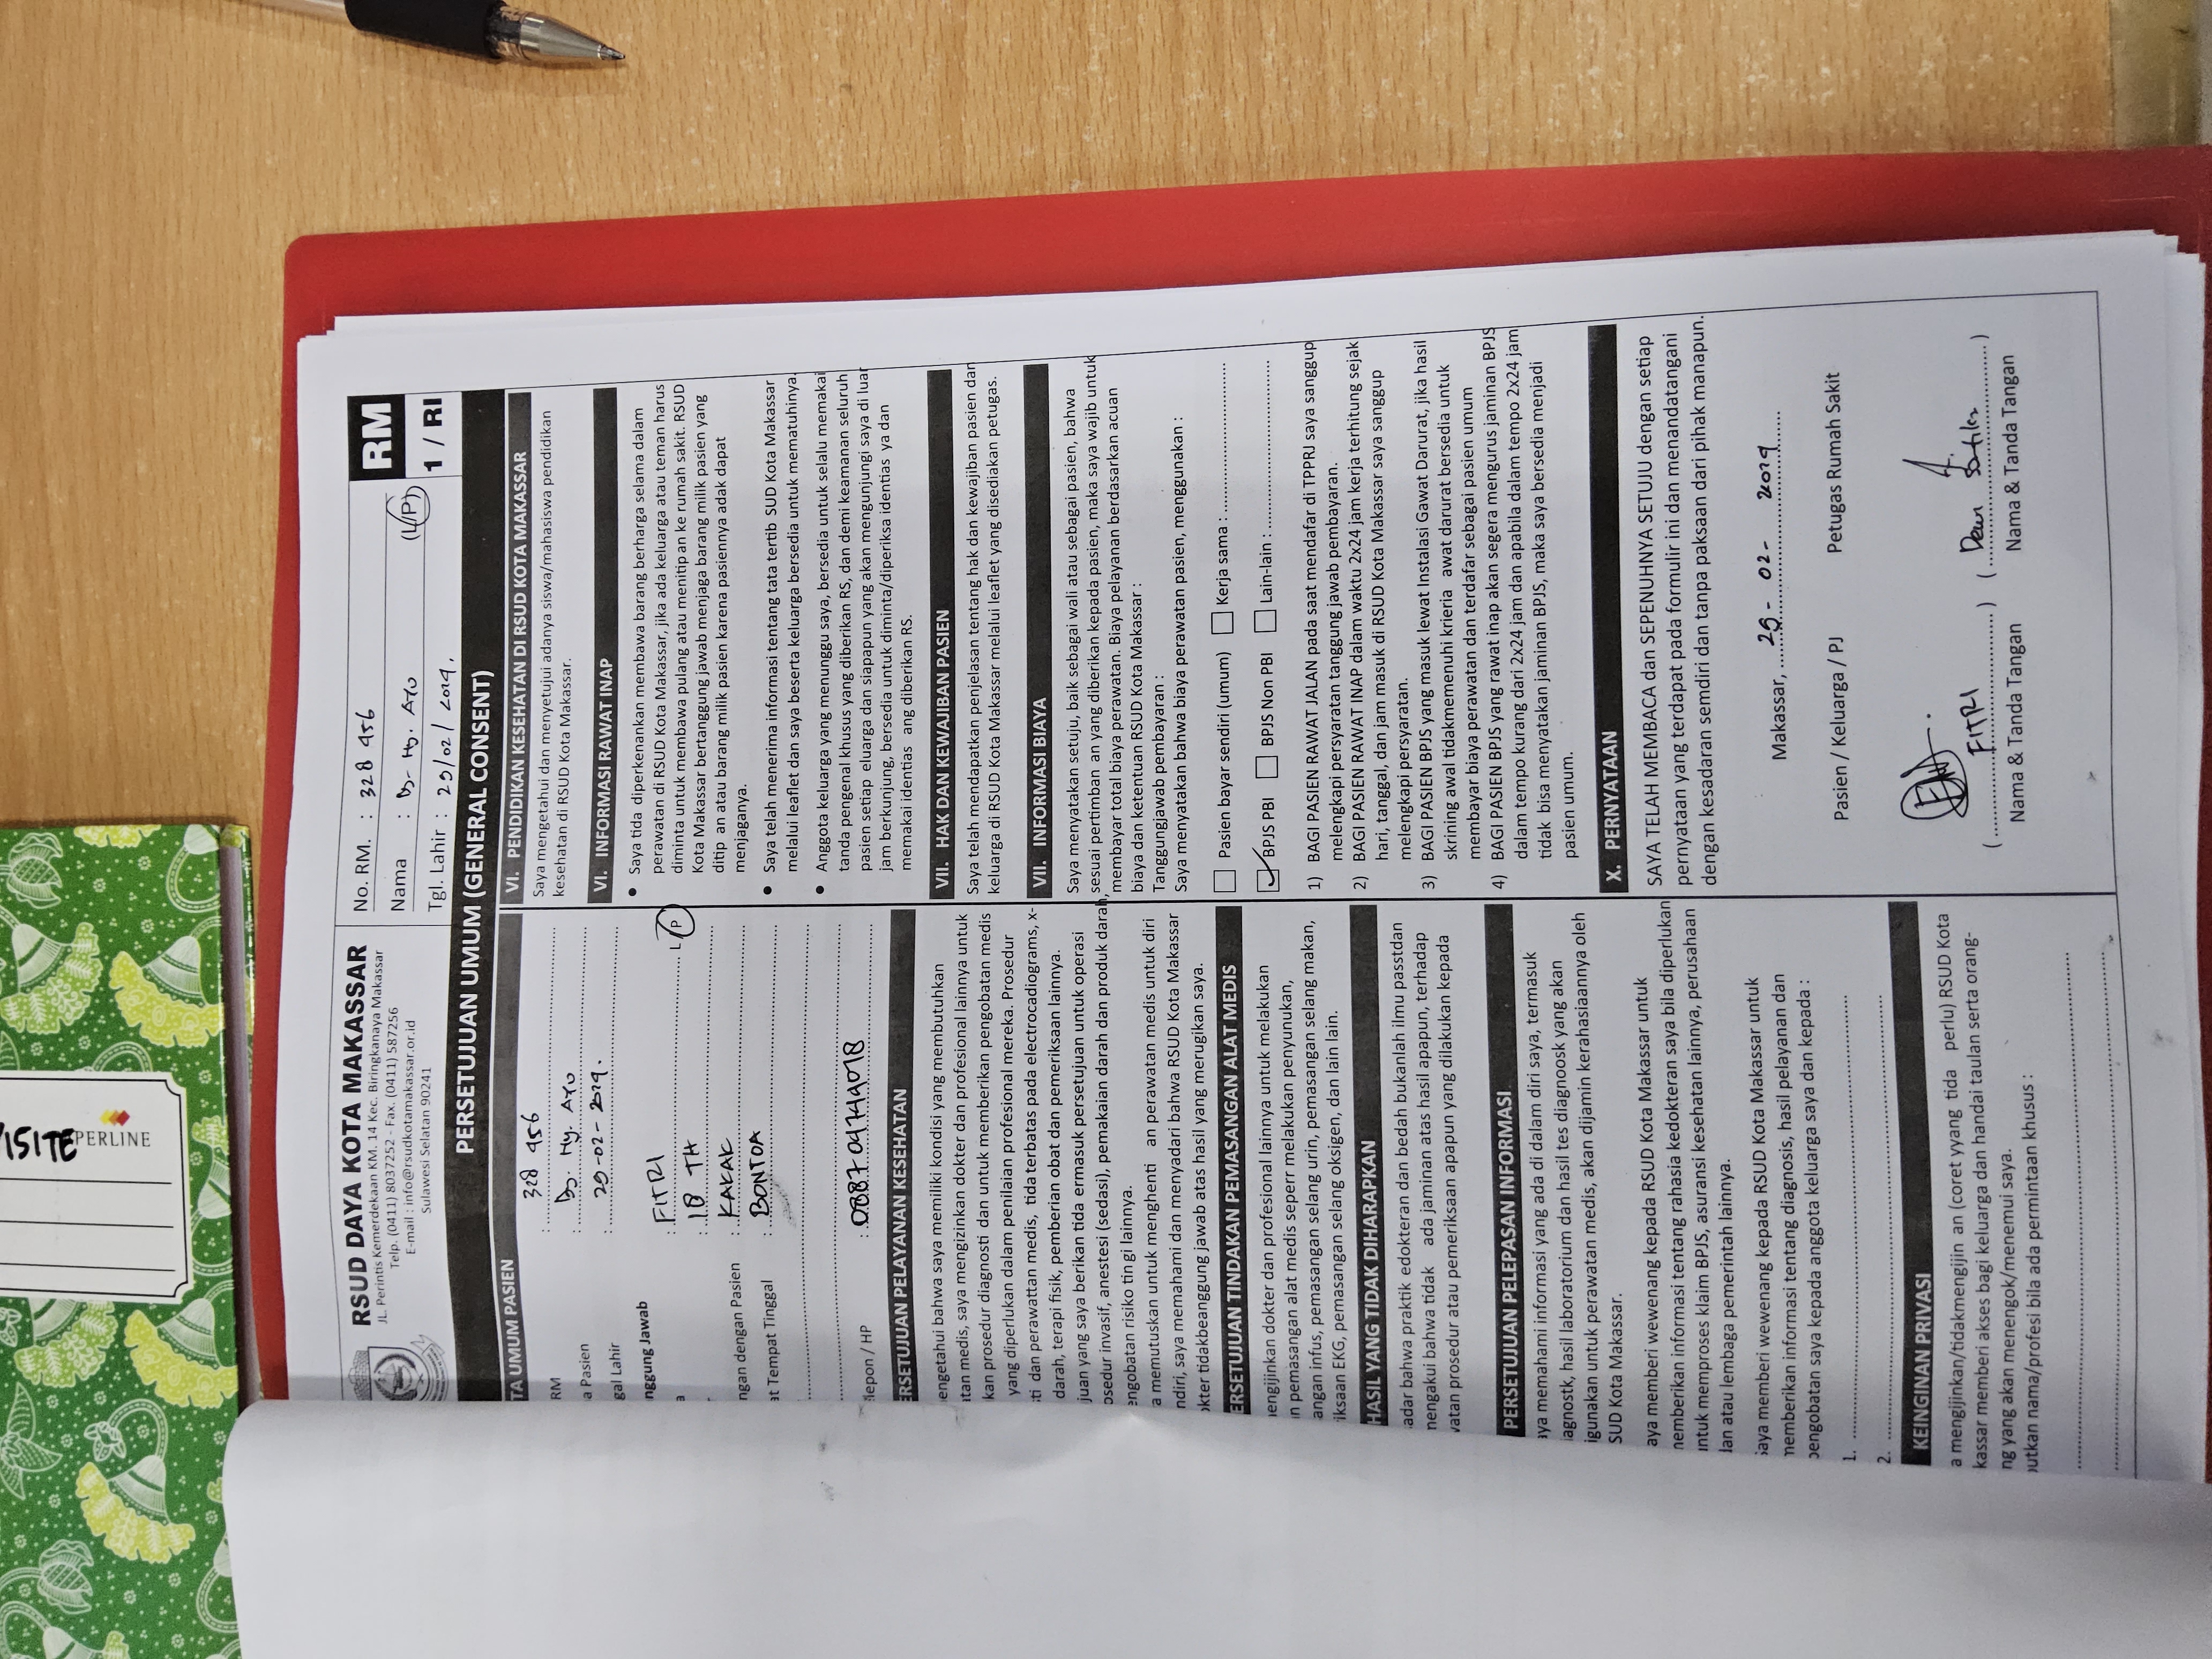 VISITE
PERLINE
RSUD DAYA KOTA MAKASSAR
JL. Perintis Kemerdekaan KM. 14 Kec. Biringkanaya Makassar
Telp. (0411) 8037252 - Fax. (0411) 587256
E-mail : info@rsudkotamakassar.or.id
Sulawesi Selatan 90241
No. RM. : 328 456
Nama : By. Ny. AYU (L/P)
Tgl. Lahir : 29/02/2024.
RM
1 / RI
PERSETUJUAN UMUM (GENERAL CONSENT)
TA UMUM PASIEN
RM : 328 456
a Pasien : By. Ny. AYU
gal Lahir : 29-02-2024.
nggung Jawab
a : FITRI L/P
: 18 TH
ngan dengan Pasien : KAKAK
at Tempat Tinggal : BONTOA
lepon / HP : 088704744018
ERSETUJUAN PELAYANAN KESEHATAN
engetahui bahwa saya memiliki kondisi yang membutuhkan
atan medis, saya mengizinkan dokter dan profesional lainnya untuk
kan prosedur diagnosti dan untuk memberikan pengobatan medis
yang diperlukan dalam penilaian profesional mereka. Prosedur
sti dan perawattan medis, tida terbatas pada electrocadiograms, x-
darah, terapi fisik, pemberian obat dan pemeriksaan lainnya.
juan yang saya berikan tida ermasuk persetujuan untuk operasi
osedur invasif, anestesi (sedasi), pemakaian darah dan produk darah,
engobatan risiko tin gi lainnya.
a memutuskan untuk menghenti an perawatan medis untuk diri
ndiri, saya memahami dan menyadari bahwa RSUD Kota Makassar
okter tidakbeanggung jawab atas hasil yang merugikan saya.
ERSETUJUAN TINDAKAN PEMASANGAN ALAT MEDIS
engijinkan dokter dan profesional lainnya untuk melakukan
n pemasangan alat medis seperr melakukan penyunukan,
angan infus, pemasangan selang urin, pemasangan selang makan,
iksaan EKG, pemasangan selang oksigen, dan lain lain.
HASIL YANG TIDAK DIHARAPKAN
adar bahwa praktik edokteran dan bedah bukanlah ilmu passtdan
nengakui bahwa tidak ada jaminan atas hasil apapun, terhadap
vatan prosedur atau pemeriksaan apapun yang dilakukan kepada
PERSETUJUAN PELEPASAN INFORMASI
aya memahami informasi yang ada di dalam diri saya, termasuk
iagnostk, hasil laboratorium dan hasil tes diagnoosk yang akan
igunakan untuk perawatan medis, akan dijamin kerahasiaannya oleh
SUD Kota Makassar.
aya memberi wewenang kepada RSUD Kota Makassar untuk
nemberikan informasi tentang rahasia kedokteran saya bila diperlukan
ntuk memproses klaim BPJS, asuransi kesehatan lainnya, perusahaan
dan atau lembaga pemerintah lainnya.
Saya memberi wewenang kepada RSUD Kota Makassar untuk
memberikan informasi tentang diagnosis, hasil pelayanan dan
pengobatan saya kepada anggota keluarga saya dan kepada :
1.
2.
KEINGINAN PRIVASI
a mengijinkan/tidakmengijin an (coret yyang tida perlu) RSUD Kota
kassar memberi akses bagi keluarga dan handai taulan serta orang-
ng yang akan menengok/menemui saya.
outkan nama/profesi bila ada permintaan khusus :
VI. PENDIDIKAN KESEHATAN DI RSUD KOTA MAKASSAR
Saya mengetahui dan menyetujui adanya siswa/mahasiswa pendidikan
kesehatan di RSUD Kota Makassar.
VI. INFORMASI RAWAT INAP
• Saya tida diperkenankan membawa barang berharga selama dalam
perawatan di RSUD Kota Makassar, jika ada keluarga atau teman harus
diminta untuk membawa pulang atau menitip an ke rumah sakit. RSUD
Kota Makassar bertanggung jawab menjaga barang milik pasien yang
ditip an atau barang milik pasien karena pasiennya adak dapat
menjaganya.
• Saya telah menerima informasi tentang tata tertib SUD Kota Makassar
melalui leaflet dan saya beserta keluarga bersedia untuk mematuhinya.
• Anggota keluarga yang menunggu saya, bersedia untuk selalu memakai
tanda pengenal khusus yang diberikan RS, dan demi keamanan seluruh
pasien setiap eluarga dan siapapun yang akan mengunjungi saya di luar
jam berkunjung, bersedia untuk diminta/diperiksa identias ya dan
memakai identias ang diberikan RS.
VII. HAK DAN KEWAJIBAN PASIEN
Saya telah mendapatkan penjelasan tentang hak dan kewajiban pasien dan
keluarga di RSUD Kota Makassar melalui leaflet yang disediakan petugas.
VII. INFORMASI BIAYA
Saya menyatakan setuju, baik sebagai wali atau sebagai pasien, bahwa
sesuai pertimban an yang diberikan kepada pasien, maka saya wajib untuk
membayar total biaya perawatan. Biaya pelayanan berdasarkan acuan
biaya dan ketentuan RSUD Kota Makassar :
Tanggungjawab pembayaran :
Saya menyatakan bahwa biaya perawatan pasien, menggunakan :
Pasien bayar sendiri (umum) Kerja sama :
BPJS PBI BPJS Non PBI Lain-lain :
1) BAGI PASIEN RAWAT JALAN pada saat mendafar di TPPRJ saya sanggup
melengkapi persyaratan tanggung jawab pembayaran.
2) BAGI PASIEN RAWAT INAP dalam waktu 2x24 jam kerja terhitung sejak
hari, tanggal, dan jam masuk di RSUD Kota Makassar saya sanggup
melengkapi persyaratan.
3) BAGI PASIEN BPJS yang masuk lewat Instalasi Gawat Darurat, jika hasil
skrining awal tidakmemenuhi krieria awat darurat bersedia untuk
membayar biaya perawatan dan terdafar sebagai pasien umum
4) BAGI PASIEN BPJS yang rawat inap akan segera mengurus jaminan BPJS
dalam tempo kurang dari 2x24 jam dan apabila dalam tempo 2x24 jam
tidak bisa menyatakan jaminan BPJS, maka saya bersedia menjadi
pasien umum.
X. PERNYATAAN
SAYA TELAH MEMBACA dan SEPENUHNYA SETUJU dengan setiap
pernyataan yang terdapat pada formulir ini dan menandatangani
dengan kesadaran semdiri dan tanpa paksaan dari pihak manapun.
Makassar, 29-02-2024
Pasien / Keluarga / PJ Petugas Rumah Sakit
( FITRI ) ( Dewi )
Nama & Tanda Tangan Nama & Tanda Tangan